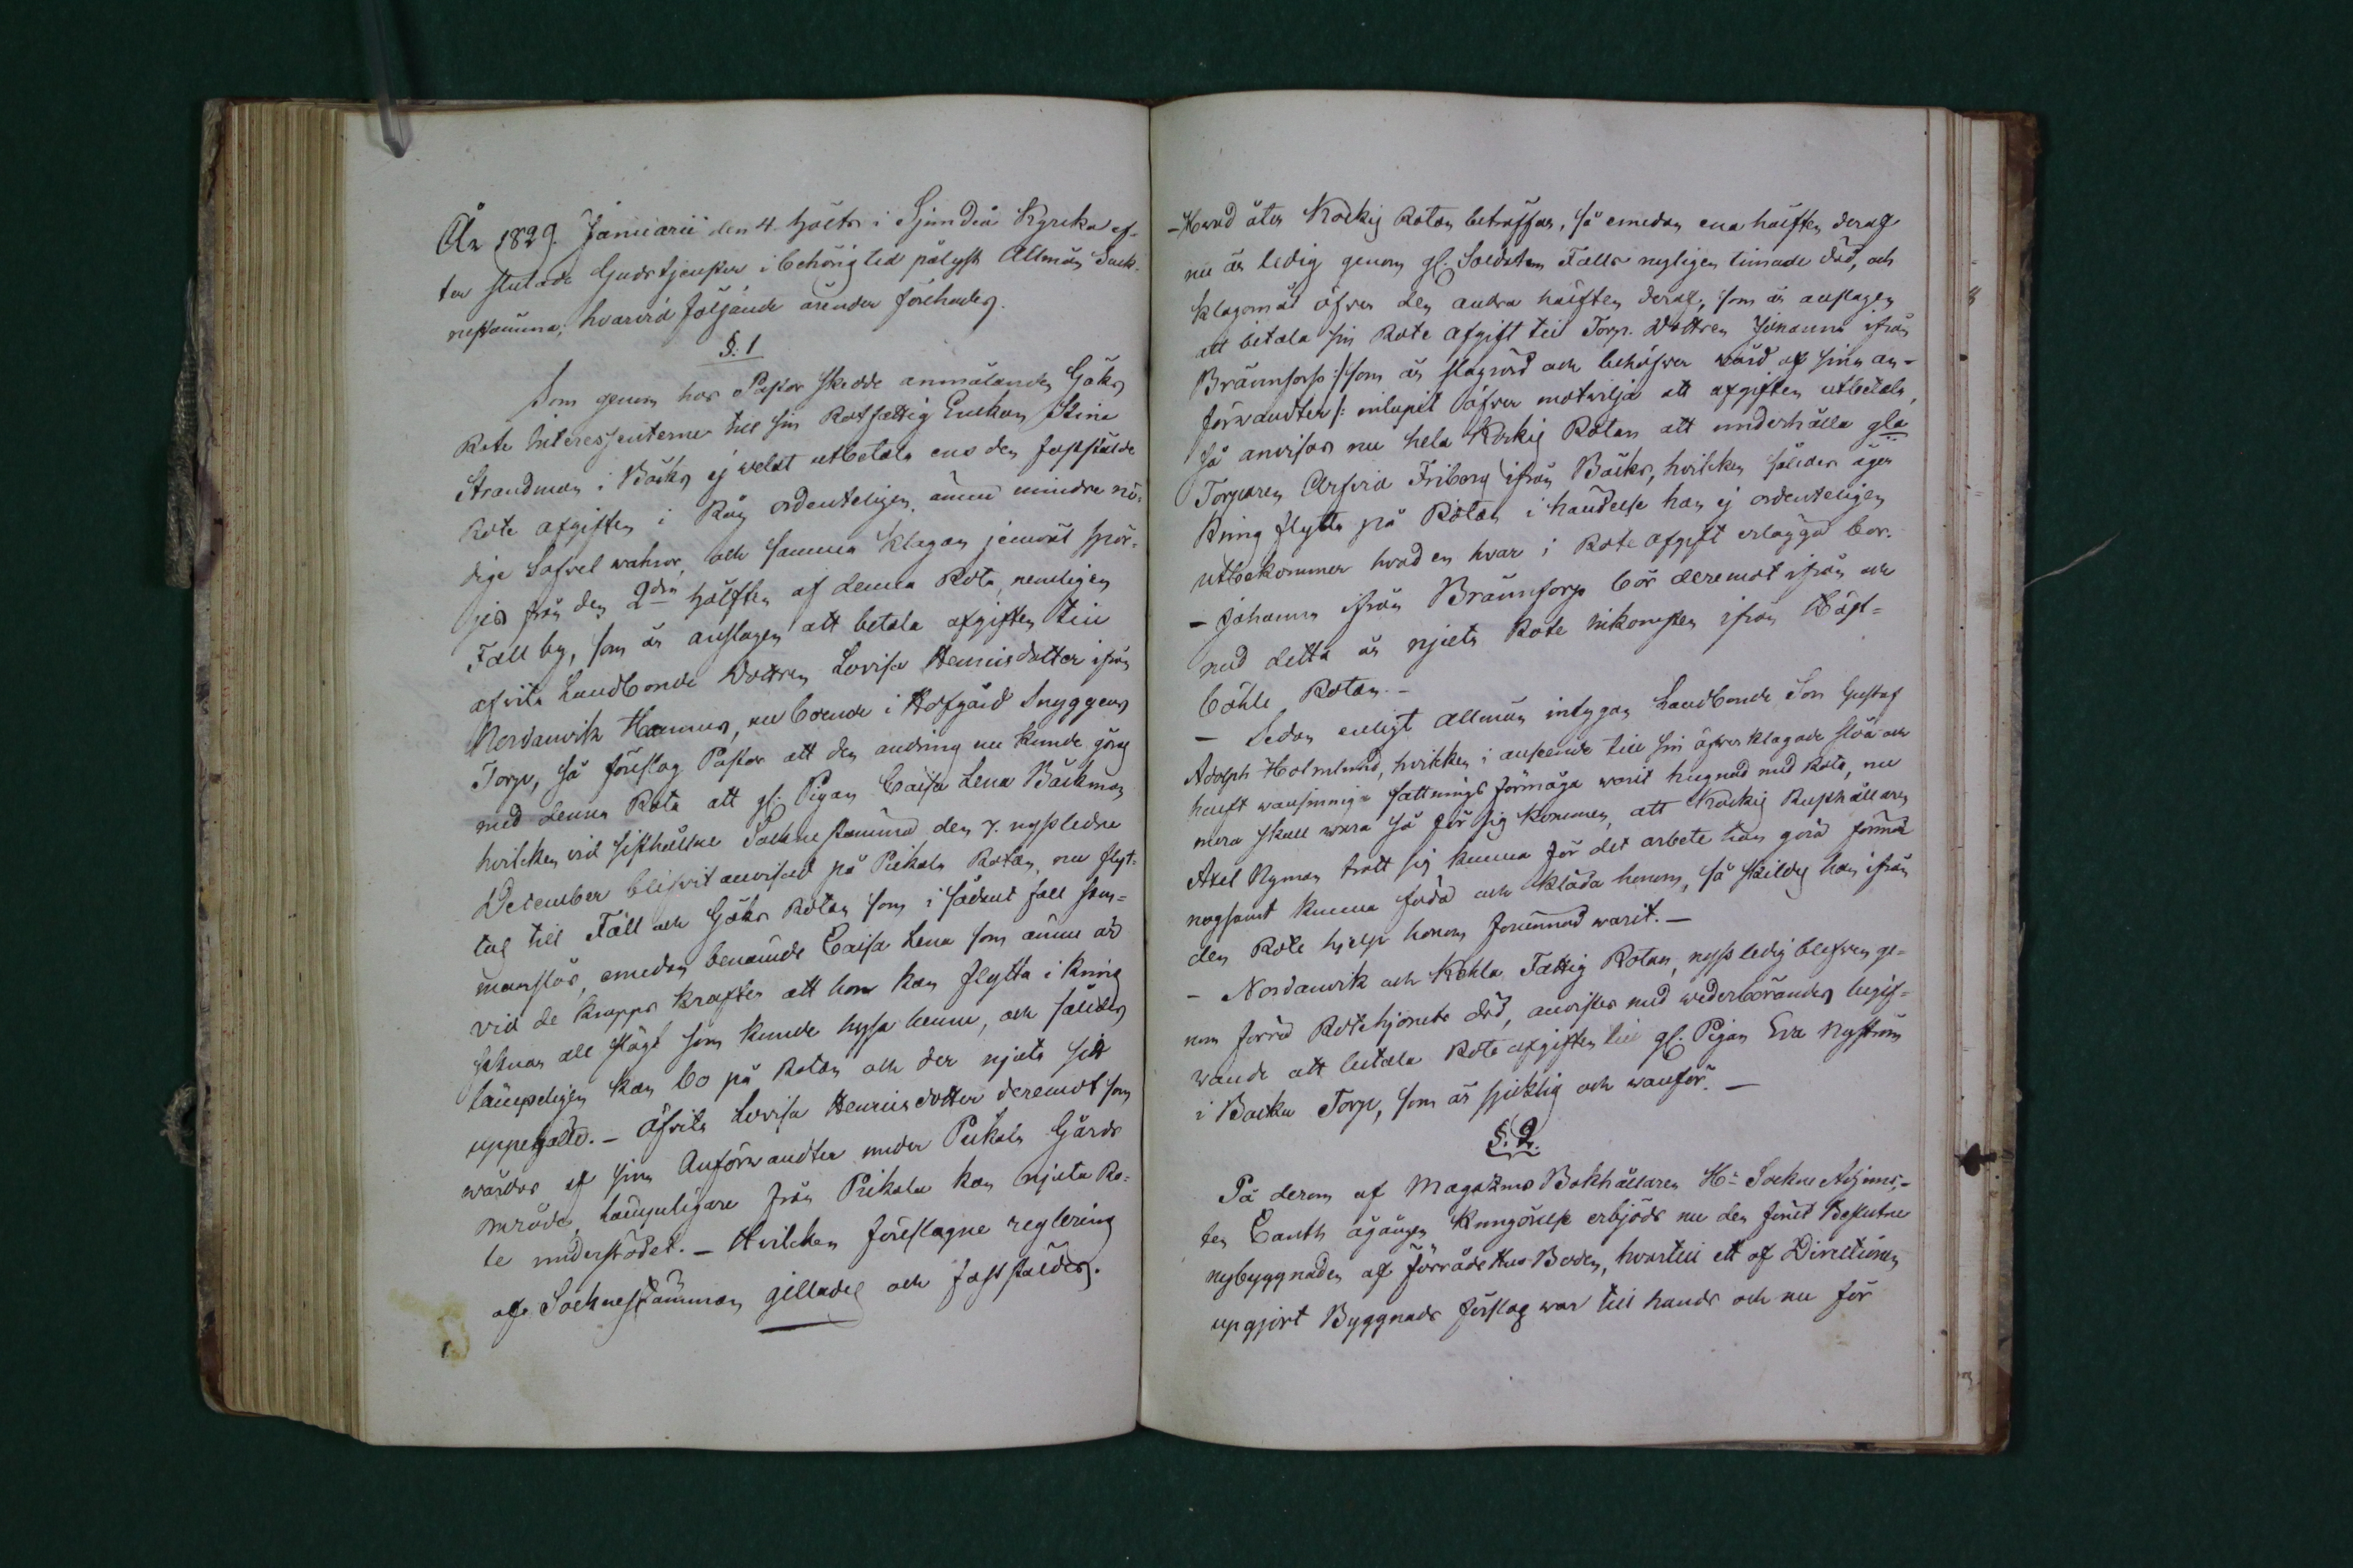 År 1829. Januarii den 4. hölts i Sjundeå Kyrka ef-
ter slutade Gudstjensten i behörig tid pålyst Allmän Sock-
nestämma, hvarvid följande ärender förehades.
§: 1
Som genom hos Pastor skedde anmälanden Göks
Rote Interessenterne till sin Rotfattig Enkan Stina
Strandman i Bäcks ej welat utbetala ens den fastställde
Rote afgiften i Råg ordenteligen, ännu mindre nö-
dige Sofvel wahror, och samma klagan jemväl spör-
jes från den 2dra hälften af denna Rota, nemligen
Fall by, som är anslagen att betala afgiften till
afvita Landbonde Dottren Lovisa Henricsdotter ifrån
Nordanvik Hannus, nu boende i Hofgård Snyggens
Torp, så föreslog Pastor att den ändring nu kunde göras
med denna Rota att gl: Pigan Caisa Lena Bäckman
hvilken vid sisthållne Socknestämma den 7. nystledne
December blifvit anvisad på Pikala Rotan, nu flyt-
tas till Fäll och Göks Rotan som i sådant fall sam-
manslås, emedan benämde Caisa Lena som ännu är
vid de kropps krafter att hon kan flytta i kring
saknar all slägt som kunde hysa henne, och således
lämpeligen kan bo på Rotan och der njuta sitt
uppehälle. - Afvita Lovisa Henricsdotter deremot som
wårdas af sina Anförwandter under Pickala Gårds
område, lämpeligare från Pikala kan njuta Ro-
te understödet. - Hvilken föreslagne reglering
af Socknestämman gillades och fastställdes.
- Hvad åter Kockis Rotan beträffar, så emedan ena hälften deraf
nu är ledig genom gl. Soldaten Falls nyligen timade död, och
klagomål öfver den andra hälften deraf, som är anslagen
att betala sin Rote afgift till Torp. Dottren Johanna ifrån
Bränntorp :/ som är slagrörd och behöfver wård af sina an-
förwandter /: inlupit öfver motvilja att afgiften utbetala,
så anvisas nu hela Kockis Rotan att underhålla gla
Torparen Arfvid Friberg ifrån Bäcks, hvilken således äger
kring flytta på Rotan i händelse han ej ordenteligen
utbekommer hvad en hvar i Rote afgift erlägga bör.
- Johanna ifrån Bränntorp bör deremot ifrån och
med detta år njuta Rote inkomsten ifrån Wäst-
böhle Rotan. -
- Sedan enligt allmän intygan Landbonde Son Gustaf
Adolph Holmlund, hvilken i anseende till sin öfverklagade slöa och
halft wansinniga fattnings förmåga warit hugnad med Rota, nu
mera skall wara så för sig kommen, att Kockis Rusthållaren
Axel Nyman trott sig kunna för det arbete han göra förmår
nogsamt kunna föda och kläda honom, så skildes han ifrån
den Rote hjelp honom förunnad warit. -
- Nordanvik och Kohla Fattig Rotan, nyss ledig blefven ge-
nom förra Rotehjonets död, anvistes med wederbörandes begif-
wande att betala Rote afgiften till gl. Pigan Eva Nyström
i Backa Torp, som är sjuklig och wanför. -
§: 2.
På derom af Magazins Bokhållaren Hr Sockne Adjunc-
ten Canth ågången kungörelse erbjöds nu den förut Beslutne
nybyggnaden af Förråds Hus Boden, hvartill ett af Directionen
upgjort Byggnads förslag war till hands och nu för